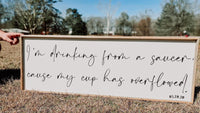 I'm drinking from a saucer
cause my cup has overflowed.